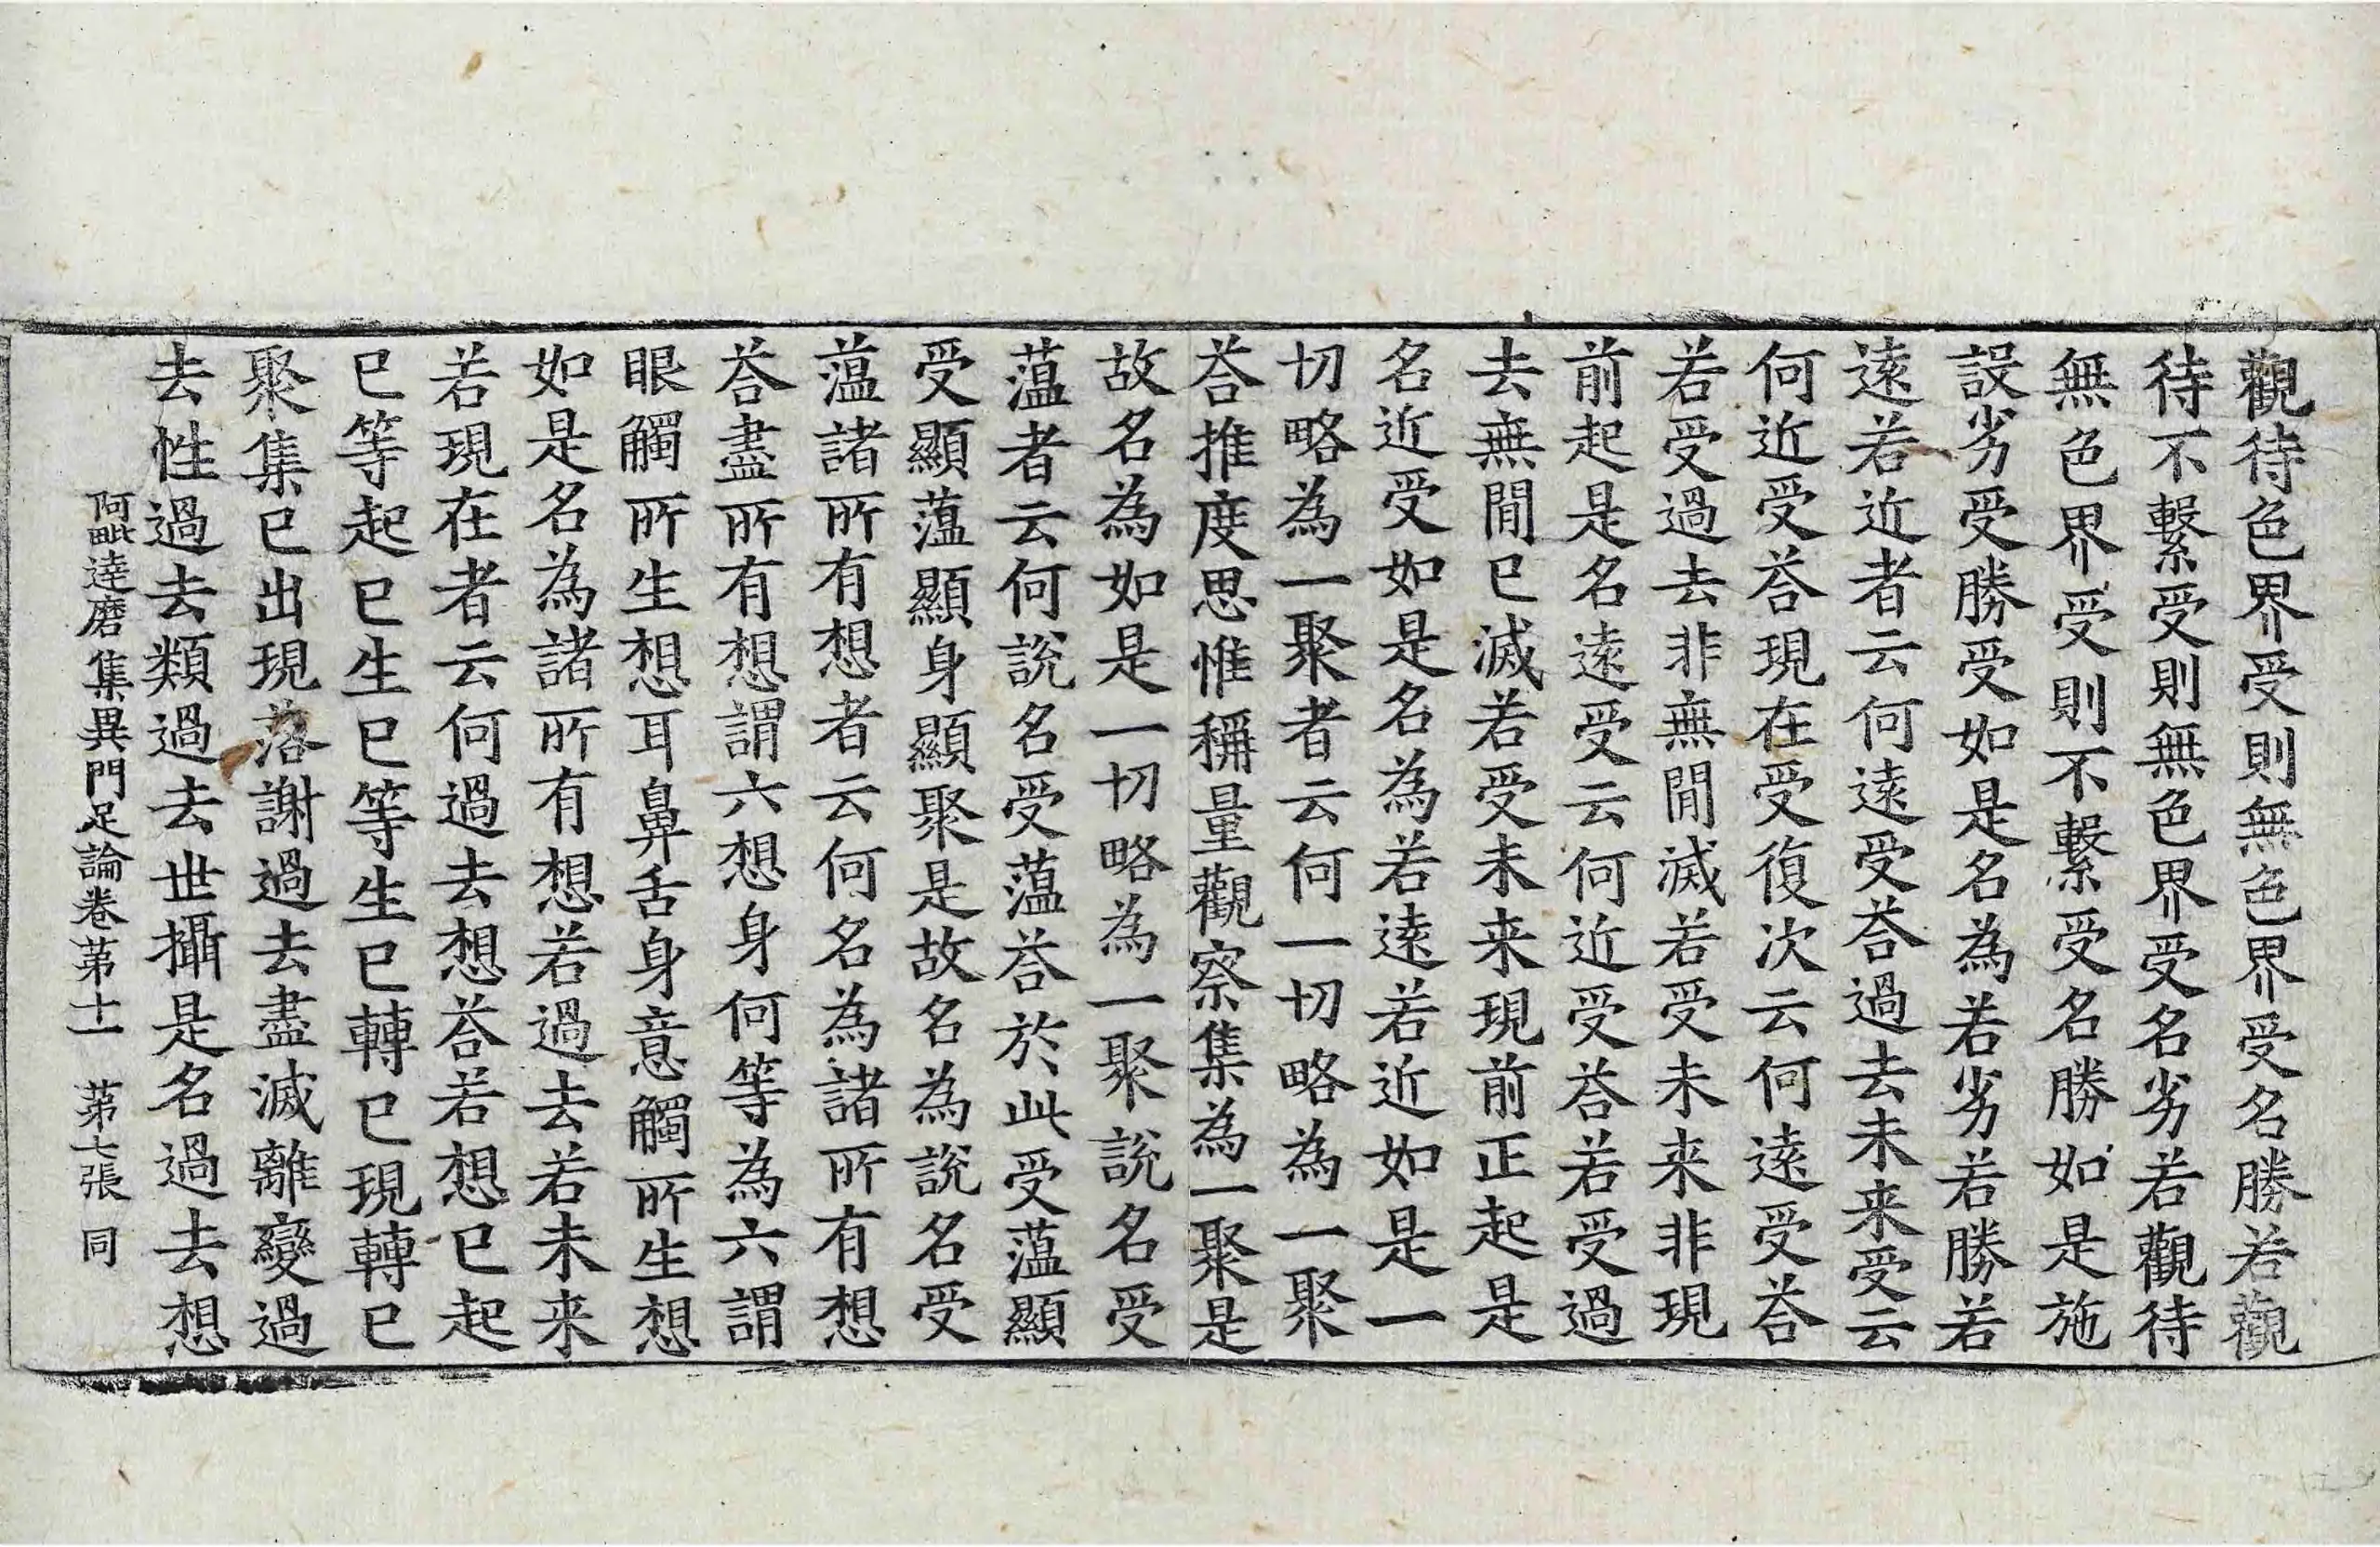 觀待色界受則無色界受名勝若觀
待不繫受則無色界受名劣若觀待
無色界受則不繫受名勝如是施
設劣受勝受如是名為若劣若勝若
遠若近者云何遠受荅過去未来受云
何近受荅現在受復次云何遠受荅
若受過去非無閒滅若受未来非現
前起是名遠受云何近受荅若受過
去無閒已滅若受未来現前正起是
名近受如是名為若遠若近如是一
切略為一聚者云何一切略為一聚
荅推度思惟稱量觀察集為一聚是
故名為如是一切略為一聚說名受
薀者云何說名受薀荅於此受薀顯
受顯薀顯身顯聚是故名為說名受
薀諸所有想者云何名為諸所有想
荅盡所有想謂六想身何等為六謂
眼觸所生想耳鼻舌身意觸所生想
如是名為諸所有想若過去若未来
若現在者云何過去想荅若想已起
已等起已生已等生已轉已現轉已
聚集已出現落謝過去盡滅離變過
去性過去類過去世攝是名過去想
阿毗達磨集異門足論卷第十一 第七張 同